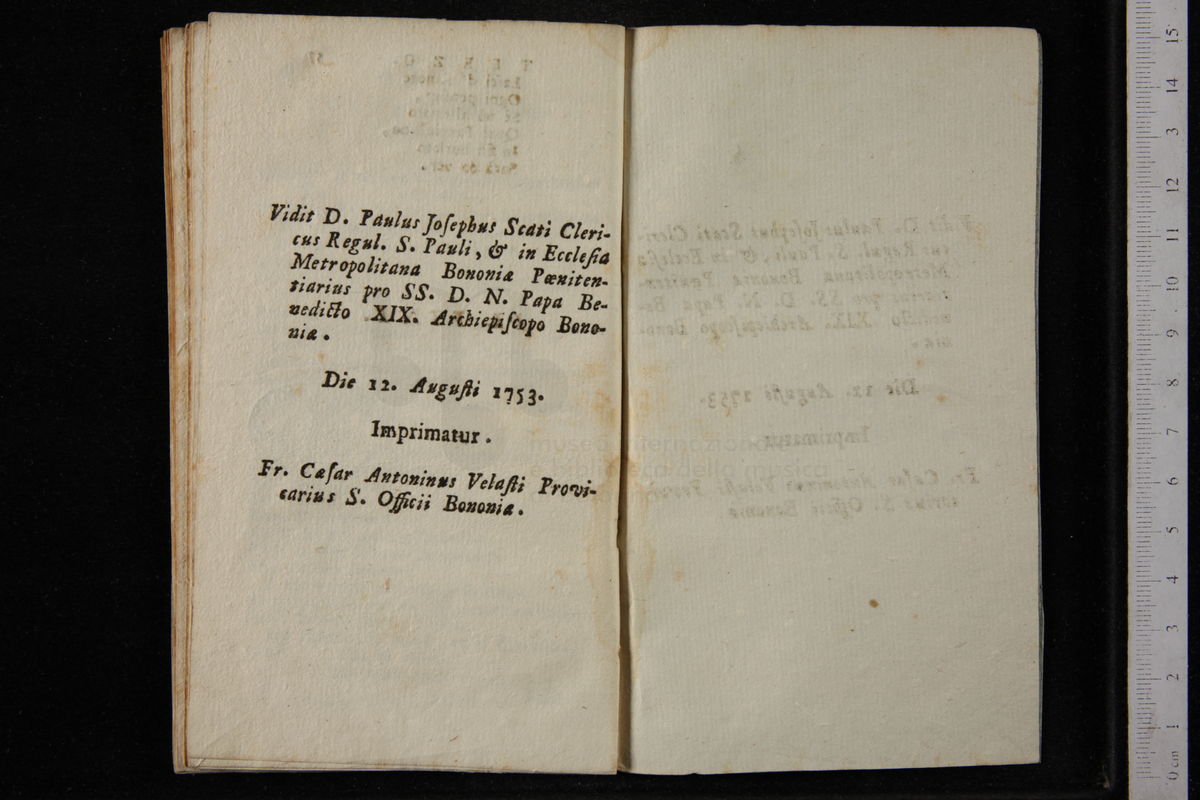 Vidit D. Paulus Joſephus Scati Cleri-
cus Regul. S. Pauli, & in Eccleſia
Metropolitana Bononiæ Pœniten-
tiarius pro SS. D. N. Papa Be-
nedicto XIX. Archiepiſcopo Bono-
niæ.
Die 12. Auguſti 1753.
Imprimatur.
Fr. Cæſar Antoninus Velaſti Provi-
carius S. Officii Bononiæ.
museo internazionale
e biblioteca della musica
0 cm 1 2 3 4 5 6 7 8 9 10 11 12 13 14 15